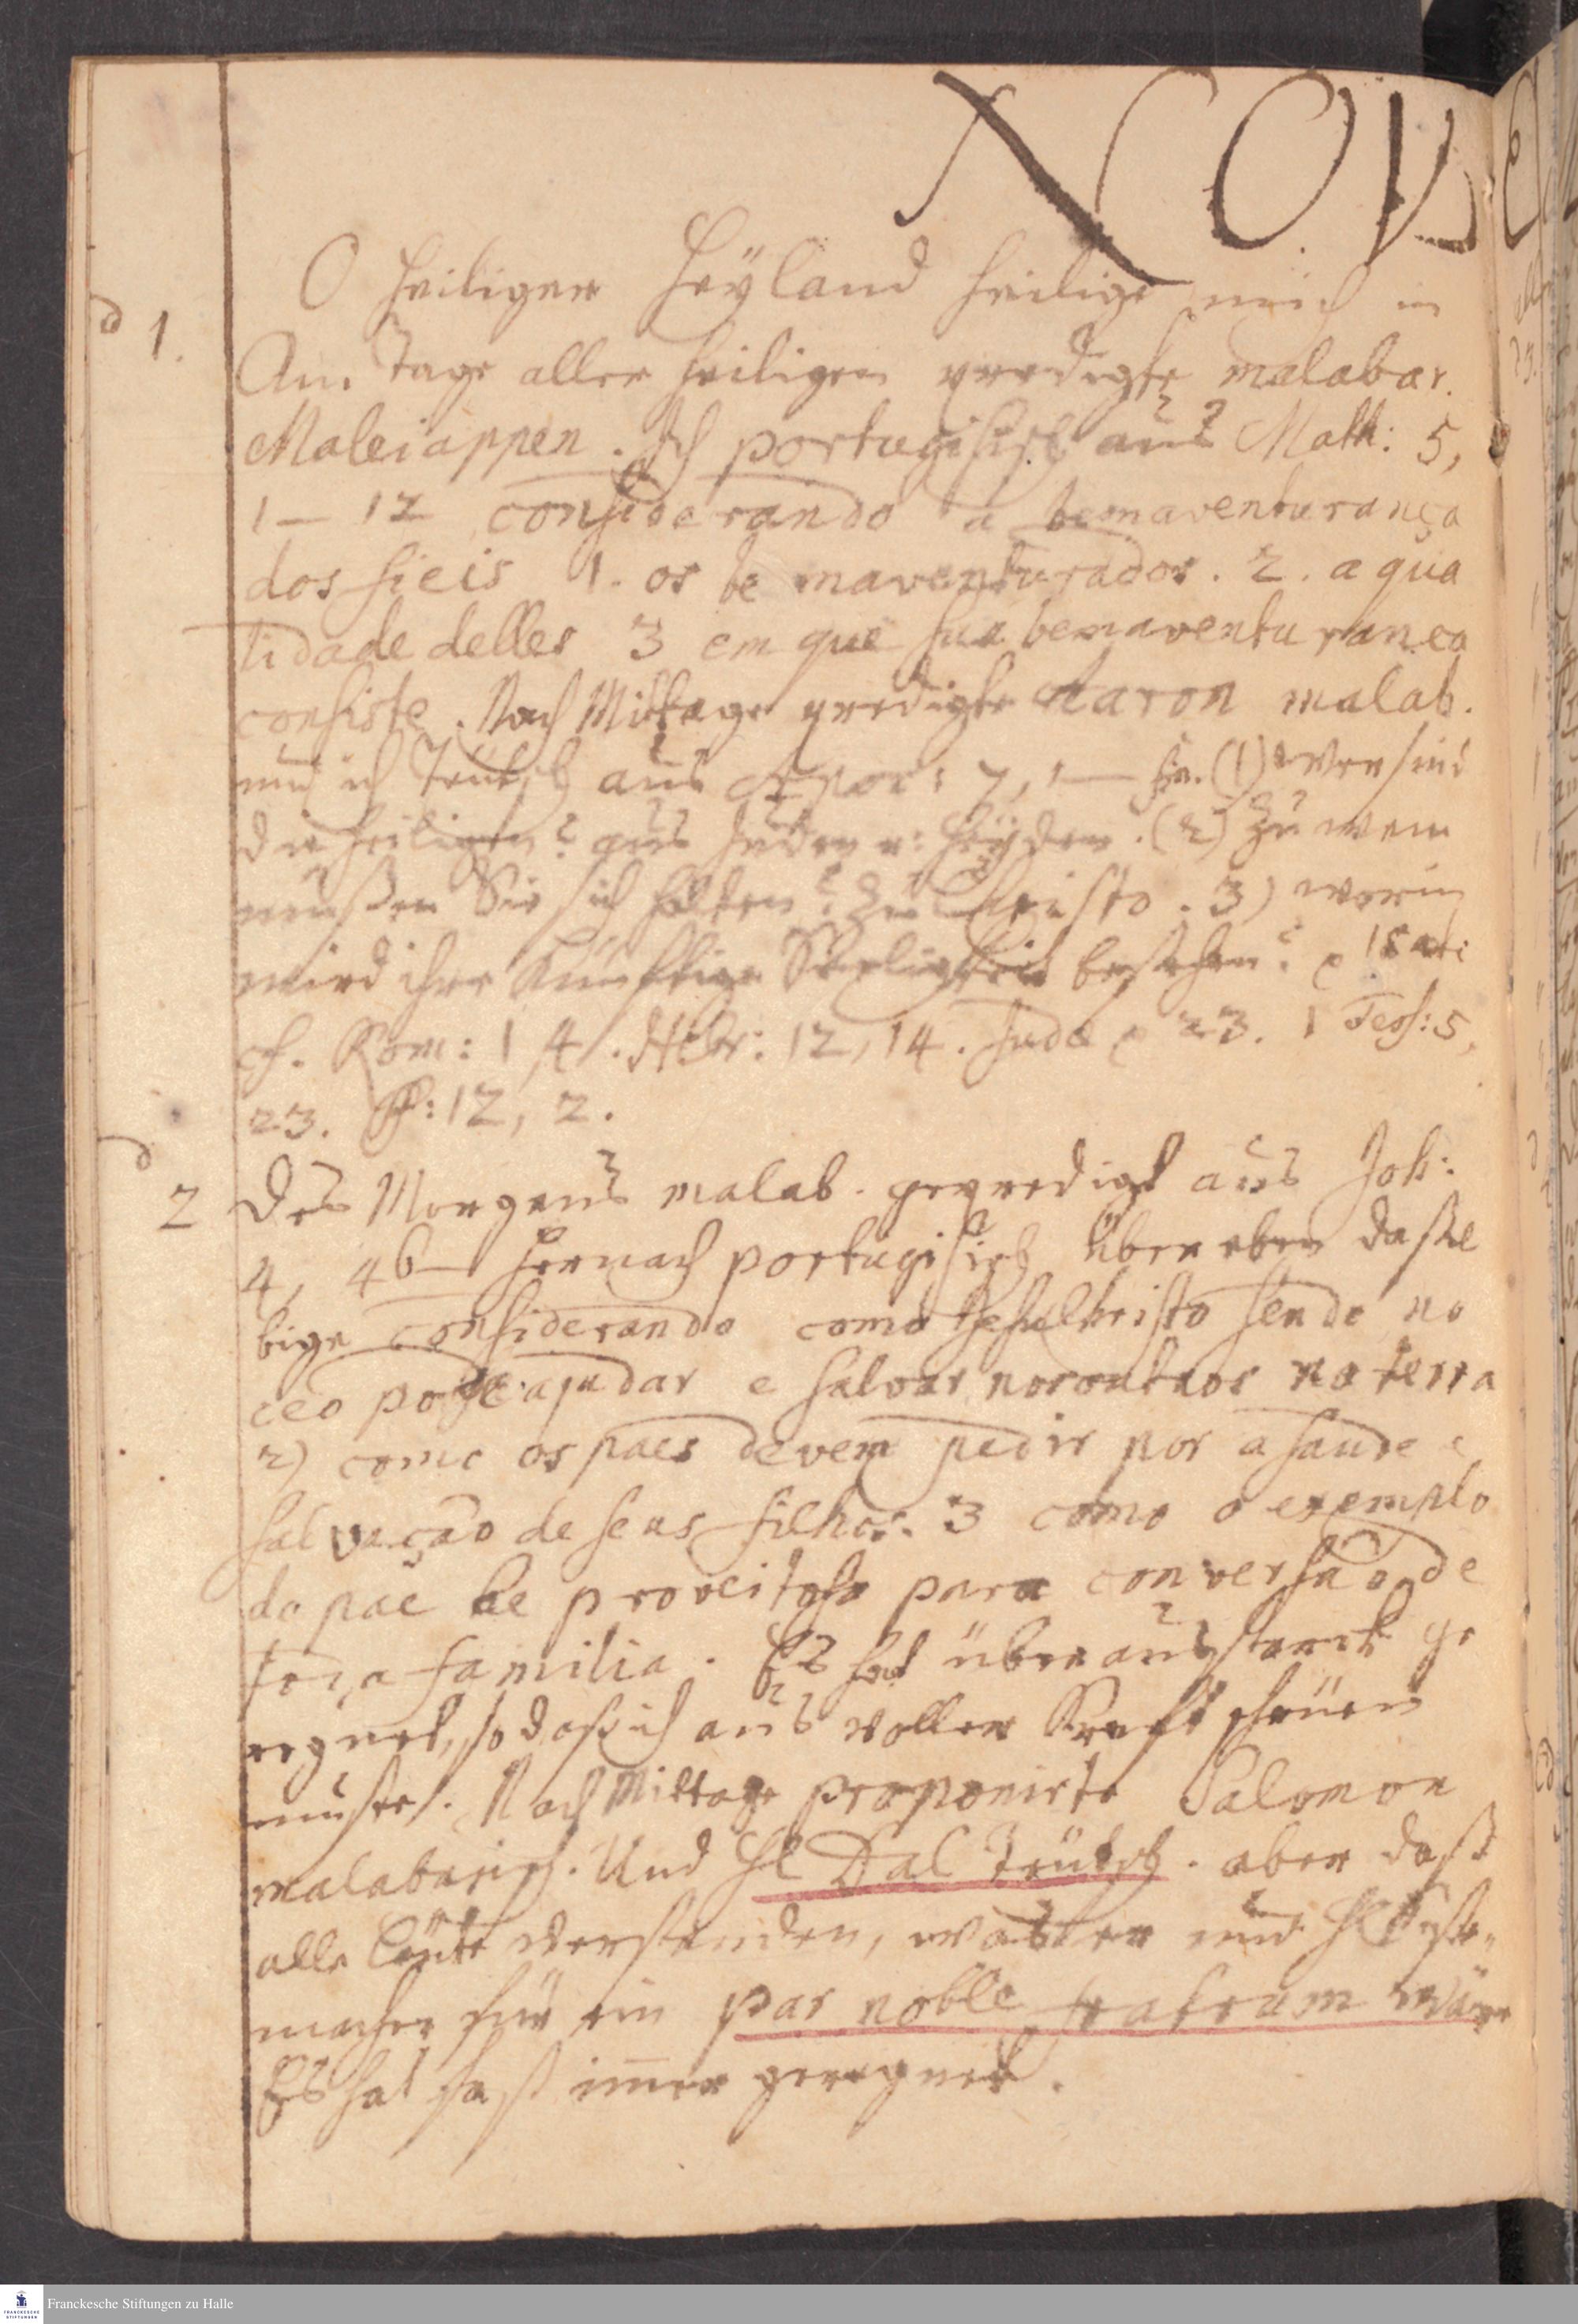 NOVE
O heiliger Heÿland heilige mich in
d 1. Am Tage aller Heiligen predigte malabar.
Maleiappen. Ich portugisisch aus Math: 5,
1 – 12 considerando a bemaventurança
dos fieis 1. os bemaventurados. 2. a qua
lidade delles 3 em que sua bemaventurança
consiste. Nach Mittage predigte Aaron malab.
und ich Teütsch aus Apoc: 7, 1 – fin. (1) Wer sind
die Heiligen? aus Juden u: Heÿden. (2) Zu wem
müßen Sie sich halten? Zu Christo. 3) worin
wird ihre Künfftige Seeligkeit bestehen?
cf. Rom: 1, 4. Hebr: 12, 14. Judæ 23. 1 Tess: 5,
23. Ps: 12, 2.
d 2 Des Morgens malab. geprediget aus Joh:
4, 46 – hernach portugisisch über eben daßel
bige considerando como Jesu Christo sendo no
ceo pode ajudar e salvar noroutros na terra
2) como os paes devem pedir por a saude e
salvação de seus filhos. 3 como o exemplo
do pae he proveitoso para conversão de
toda familia. Es hat überaus starck ge
regnet, so daß ich aus voller Krafft schreüen
muste. Nach Mittage proponirte Salomon
malabarisch. Und H Dal Teütsch. aber daß
alle Leüte verstanden, was er und H Kiste„
macher für ein par nobile fratrum wäre
Es hat fast im̄er geregnet.
Franckesche Stiftungen zu Halle